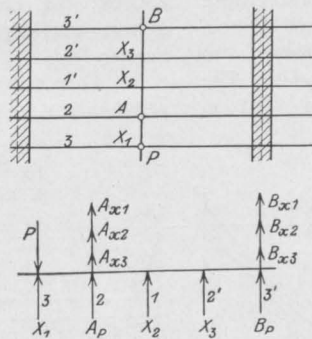 3' B
2' X₃
1' X₂
2 A
3 X₁
P
Aₓ₁ Bₓ₁
P Aₓ₂ Bₓ₂
Aₓ₃ Bₓ₃
3 2 1 2' 3'
X₁ Aₚ X₂ X₃ Bₚ